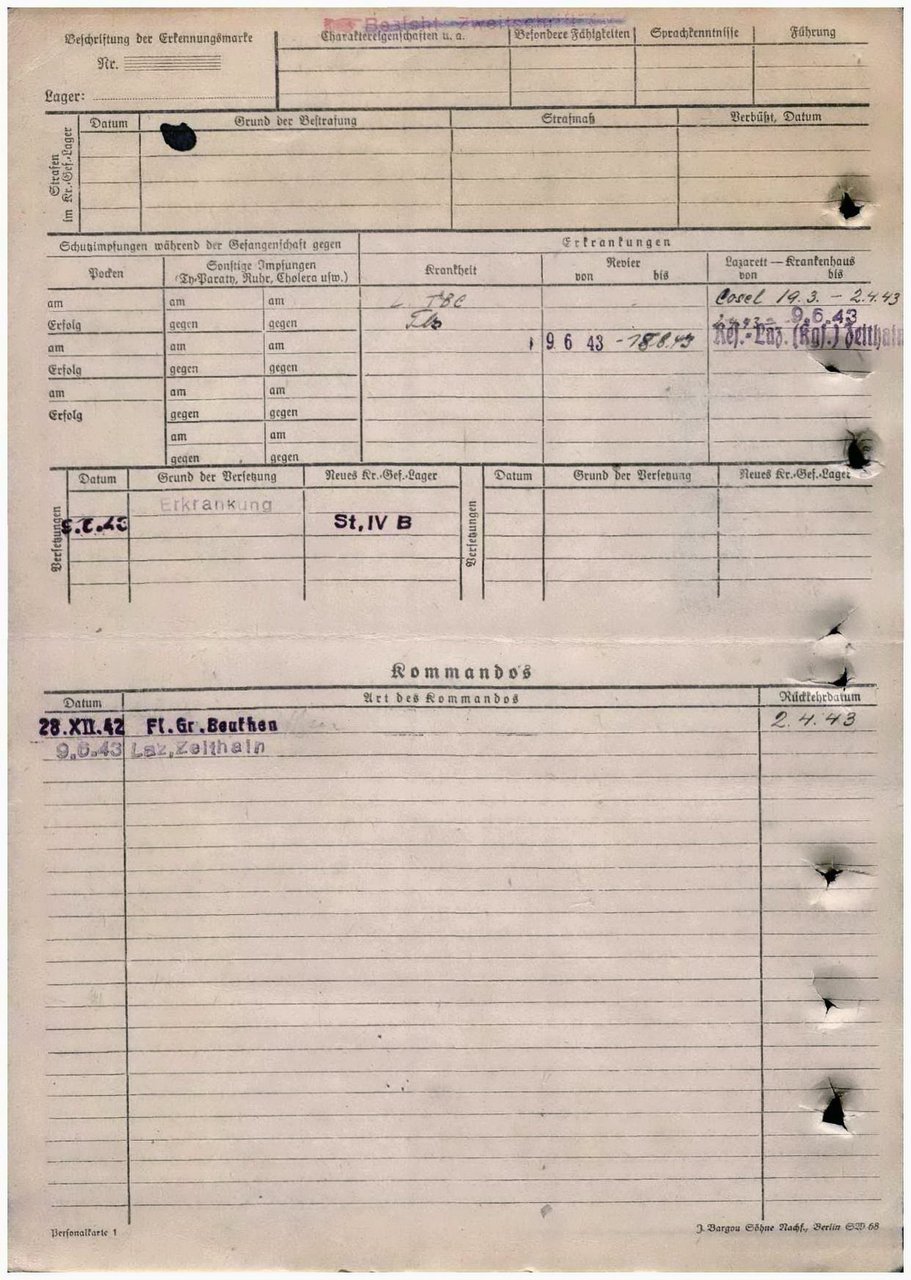 Beschriftung der Erkennungsmarke
Nr.
Lager:
Charaktereigenschaften u. a.
Besondere Fähigkeiten
Sprachkenntnisse
Führung
Strafen im Kr.-Gef.-Lager
Datum
Grund der Bestrafung
Strafmaß
Verbüßt, Datum
Schutzimpfungen während der Gefangenschaft gegen
Erkrankungen
Pocken
Sonstige Impfungen
(Ty-Paraty, Ruhr, Cholera usw.)
Krankheit
Revier
von bis
Lazarett — Krankenhaus
von bis
am am am
TBC
Cosel 19.3. – 2.4.43
Erfolg gegen gegen
Tbc
9.6.43
am am am
9 6 43 - 18.8.43
Res.-Laz. (Kgf.) Zeithain
Erfolg gegen gegen
am am am
Erfolg gegen gegen
am am
gegen gegen
Versetzungen
Datum Grund der Versetzung Neues Kr.-Gef.-Lager
Erkrankung
St, IV B
Versetzungen
Datum Grund der Versetzung Neues Kr.-Gef.-Lager
Kommandos
Datum Art des Kommandos Rückkehrdatum
28.XII.42 Fl. Gr. Beuthen 2.4.43
9.6.43 Laz, Zeithain
Personalkarte 1
J. Bargou Söhne Nachf., Berlin SW 68